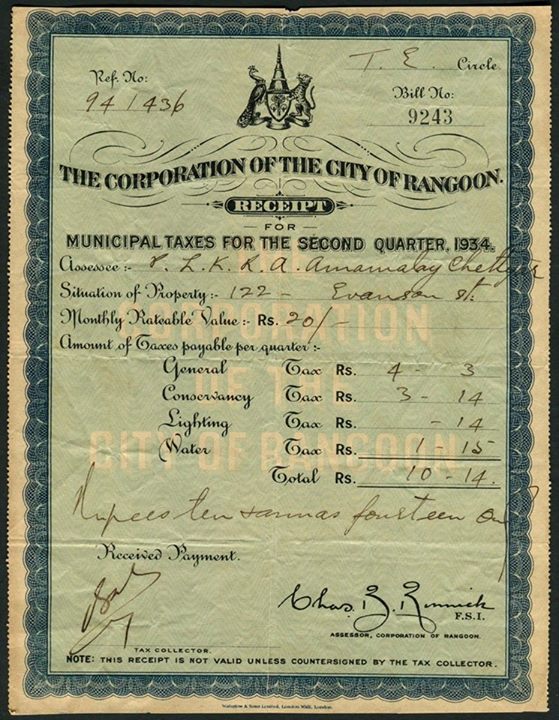 T. E. Circle
Ref. No:
94/436
Bill No:
9243
THE CORPORATION OF THE CITY OF RANGOON.
RECEIPT
FOR
MUNICIPAL TAXES FOR THE SECOND QUARTER, 1934.
Assessee :- P. L. K. K. A. Annamalay Chettyar
Situation of Property :- 122 - Evanson St.
Monthly Rateable Value :- Rs. 20/-
Amount of Taxes payable per quarter :-
General Tax Rs. 4 - 3
Conservancy Tax Rs. 3 - 14
Lighting Tax Rs. - 14
Water Tax Rs. 1 - 15
Total Rs. 10 - 14.
THE CORPORATION OF THE CITY OF RANGOON
Rupees ten annas fourteen
Received Payment.
Chas.
F.S.I.
ASSESSOR, CORPORATION OF RANGOON.
TAX COLLECTOR.
NOTE: THIS RECEIPT IS NOT VALID UNLESS COUNTERSIGNED BY THE TAX COLLECTOR.
Waterlow & Sons Limited, London Wall, London.